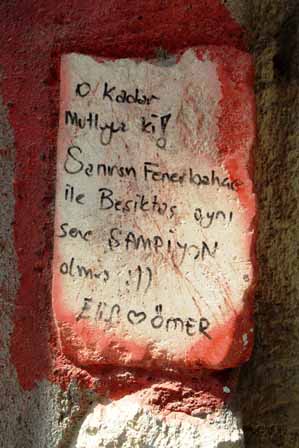 O Kadar
Mutluyu ki!
Sanırsın Fenerbahçe
ile Beşiktaş aynı
sene ŞAMPİYON
olmuş :))
Elif ♡ ÖMER